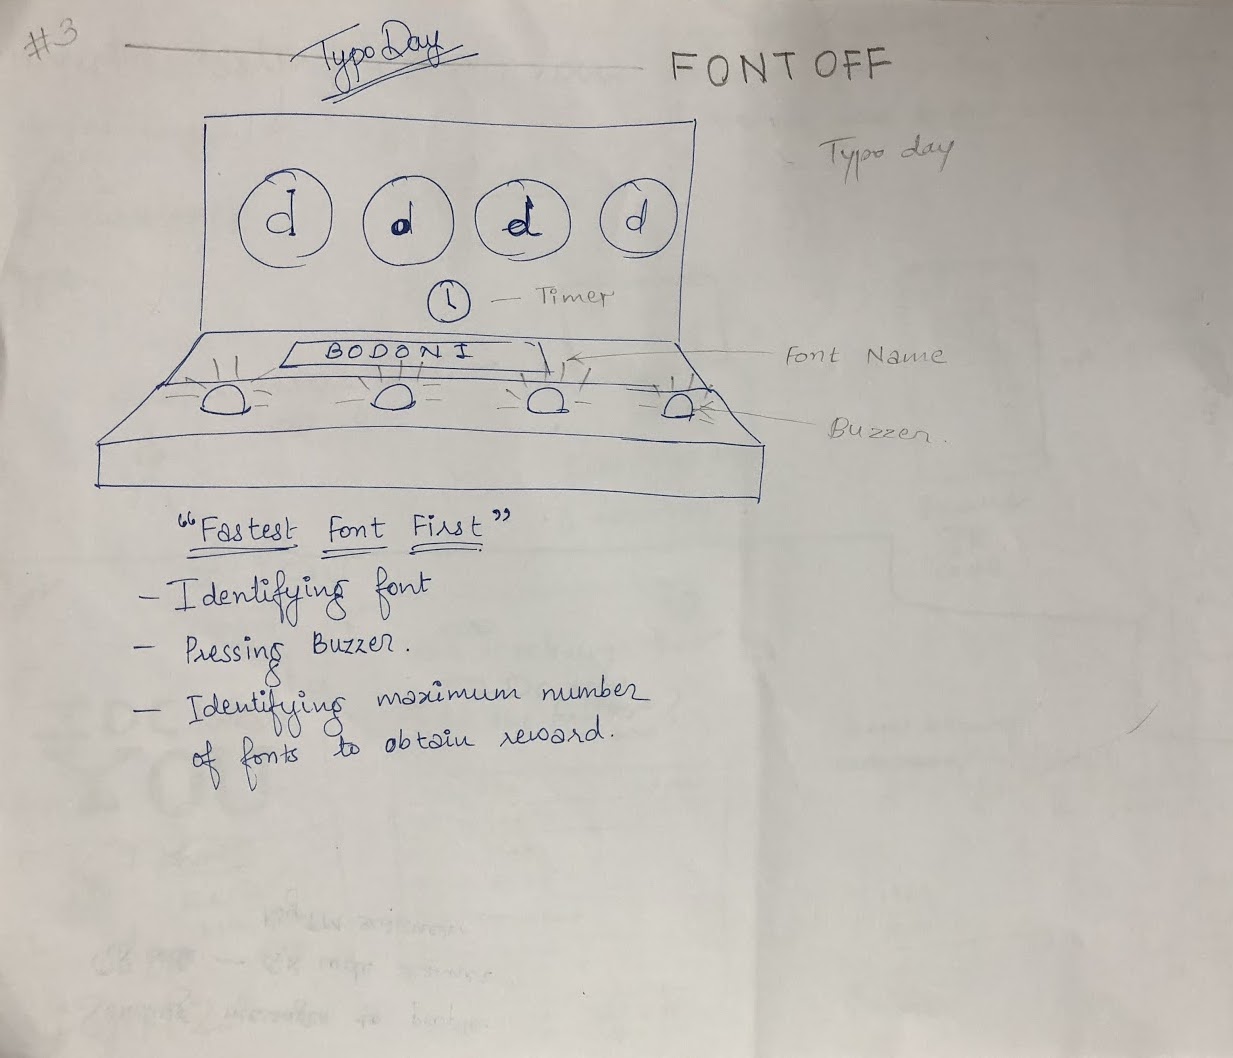 #3
Typo Day
FONT OFF
Typo day
d d d d
Timer
BODONI
Font Name
Buzzer.
"Fastest Font First"
- Identifying font
- Pressing Buzzer.
- Identifying maximum number
of fonts to obtain reward.